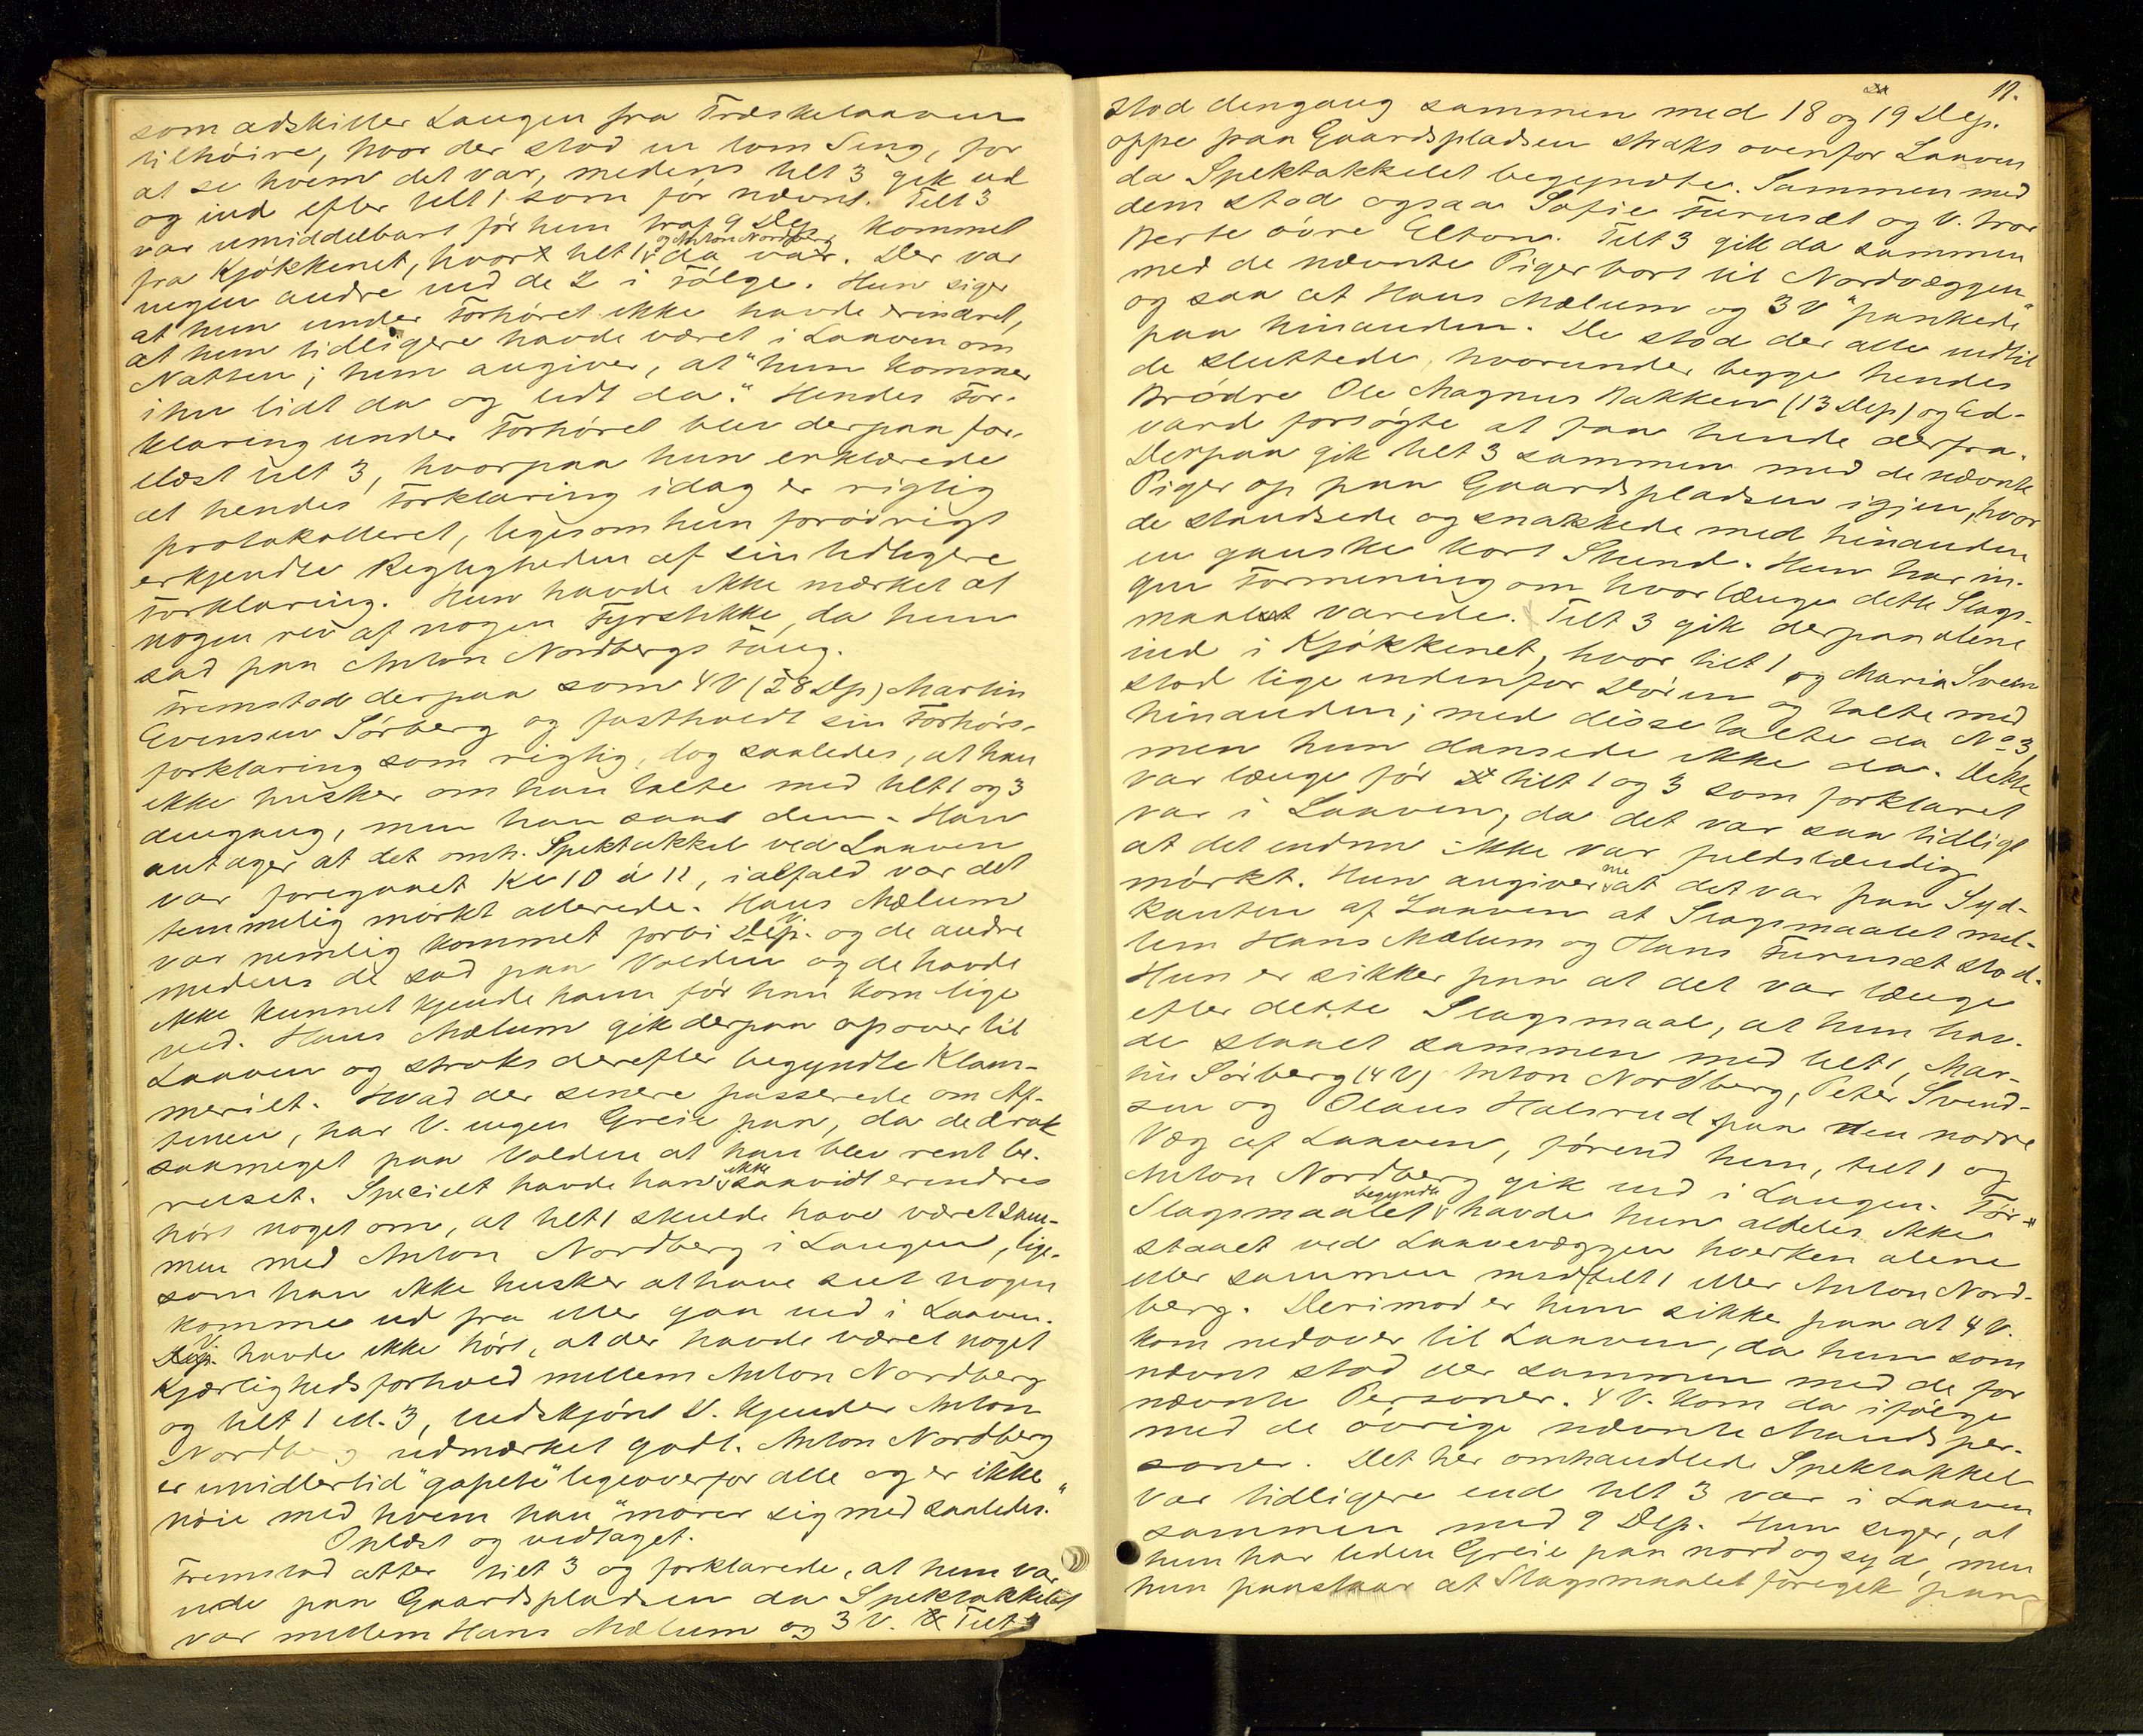 som adskiller Laugen fra Træskelaaven
tilhøire, hvor der stod en tom Seng, for
at se hvem det var, medens tilt 3 gik ud
og ind efter tilt 1 som før nævnt. Tilt 3
var umiddelbart før hun traf 9 Dep. kommet
fra Kjøkkenet, hvor tilt 1 og Anton Nordberg da var. Der var
ingen andre end de 2 i Følge. Hun siger
at hun under Forhøret ikke havde erindret,
at hun tidligere havde været i Laaven om
Natten; hun angiver, at "hun kommer
ihu lidt da og lidt da." Hendes For-
klaring under Forhøret blev derpaa for-
elæst tilt 3, hvorpaa hun erklærede
at hendes Forklaring idag er rigtig
protokolleret, ligesom hun forøvrigt
erkjendte Rigtigheden af sin tidligere
Forklaring. Hun havde ikke mærket at
nogen rev af nogen Fyrstikke, da hun
sad paa Anton Nordbergs Fang.
Fremstod derpaa som 4 V (28 Dp) Martin
Evensen Sørberg og fastholdt sin Forhørs-
forklaring som rigtig, dog saaledes, at han
ikke husker om han talte med tilt 1 og 3
dengang, men han saa dem. Han
antager at det omh. Spektakkel ved Laaven
var foregaaet Kl 10 à 11, ialfald var det
temmelig mørkt allerede. Hans Mælum
var nemlig kommet forbi V. og de andre
medens de sad paa Volden og de havde
ikke kunnet kjende ham før han kom lige
ved. Hans Mælum gik derpaa opover til
Laaven og straks derefter begyndte Klam-
meriet. Hvad der senere passerede om Af-
tenen, har V. ingen Greie paa, da de drak
saameget paa Volden at han blev rent be-
ruset. Specielt havde han ikke saavidt erindres
hørt noget om, at tilt 1 skulde have været sam-
men med Anton Nordberg i Laugen, lige-
som han ikke husker at have seet nogen
komme ud fra eller gaa ind i Laaven.
V. havde ikke hørt, at der havde været noget
Kjærlighedsforhold mellem Anton Nordberg
og tilt 1 ell. 3, endskjønt V. kjender Anton
Nordberg udmærket godt. Anton Nordberg
er imidlertid "gapete" ligeoverfor alle og er ikke
nøie med hvem han "morer sig med saaledes."
Oplæst og vedtaget.
Fremstod atter tilt 3 og forklarede, at hun var
ude paa Gaardspladsen da Spektakkelet
var mellem Hans Mælum og 3 V. Tilt 3
11.
stod dengang sammen med 18 og 19 Dep.
oppe paa Gaardspladsen straks ovenfor Laaven
da Spektakkelet begyndte. Sammen med
dem stod ogsaa Sofie Furuset og V. tror
Berte øvre Elton. Tilt 3 gik da sammen
med de nævnte Piger bort til Nordvæggen
og saa at Hans Mælum og 3 V "pankede"
paa hinanden. De stod der alle indtil
de sluttede, hvorunder begge hendes
Brødre Ole Magnus Bakken (13 Dep) og Ed-
vard forsøgte at faa hende derfra.
Derpaa gik tilt 3 sammen med de nævnte
Piger op paa Gaardspladsen igjen, hvor
de standsede og snakkede med hinanden
en ganske kort Stund. Hun har in-
gen Formening om hvorlænge dette Slags-
maal varede. Tilt 3 gik derpaa alene
ind i Kjøkkenet, hvor tilt 1 og Maria Sveen
stod lige indenfor Døren og talte med
hinanden; med disse talte da No 3,
men hun dansede ikke da. Dette
var længe før tilt 1 og 3 som forklaret
var i Laaven, da det var saa tidligt
at det endnu ikke var fuldstændig
mørkt. Hun angiver at det var paa Syd-
kanten af Laaven at Slagsmaalet mel-
lem Hans Mælum og Hans Furuset stod.
Hun er sikker paa at det var længe
efter dette Slagsmaal, at hun hav-
de staaet sammen med tilt 1, Mar-
tin Sørberg (4 V) Anton Nordberg, Peter Svend-
sen og Olaus Halsrud paa den nordre
Væg af Laaven, førend hun, tilt 1 og
Anton Nordberg gik ind i Laugen. Før
Slagsmaalet begyndte havde hun aldeles ikke
staaet ved Laavevæggen hverken alene
eller sammen med tilt 1 eller Anton Nord-
berg. Derimod er hun sikker paa at 4 V.
kom nedover til Laaven, da hun som
nævnt stod der sammen med de før
nævnte Personer. 4 V. kom da i følge
med de øvrige nævnte Mandsper-
soner. Det her omhandlede Spektakkel
var tidligere end tilt 3 var i Laaven
sammen med 9 Dep. Hun siger, at
hun har liden Greie paa nord og syd, men
hun paastaar at Slagsmaalet foregik paa